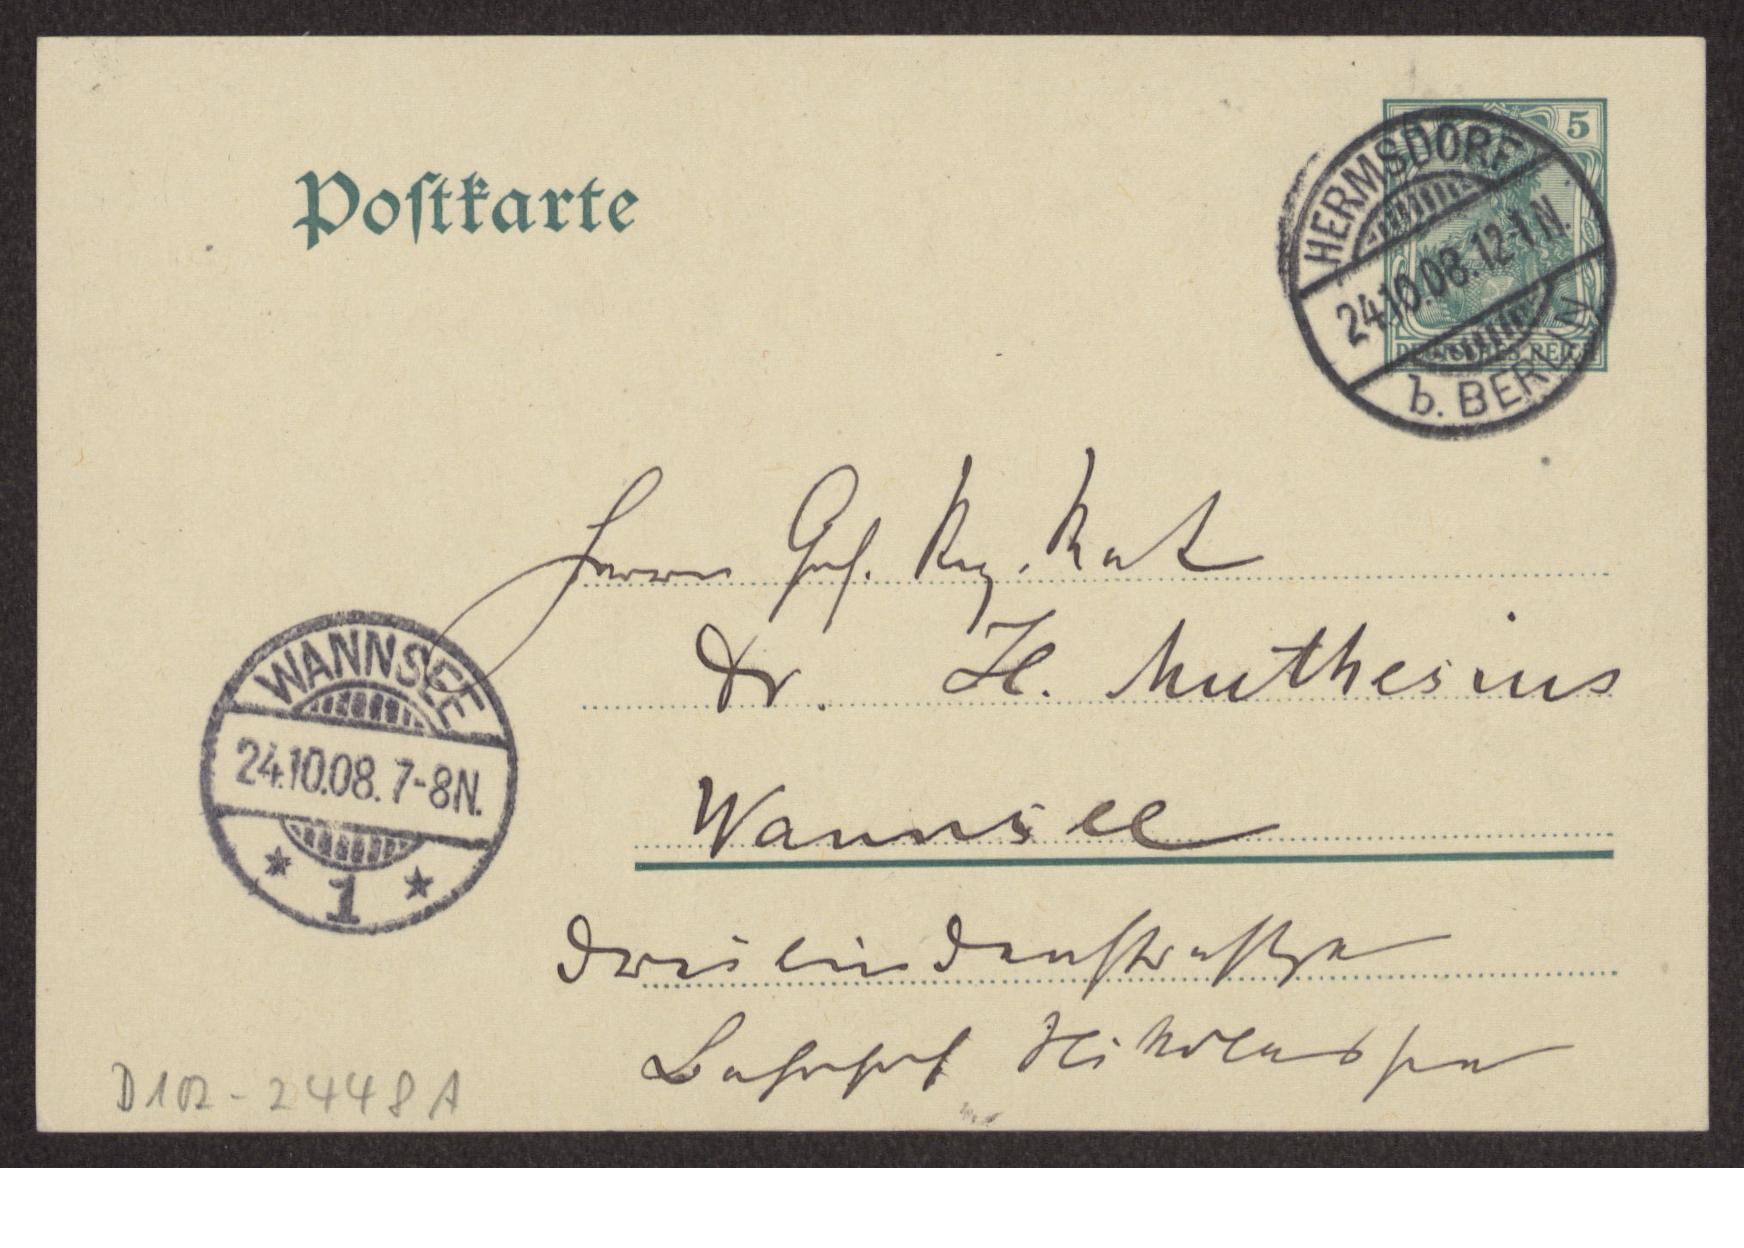 Postkarte
5
DEUTSCHES REICH
HERMSDORF
24.10.08.12-1N.
b. BERLIN
Herrn Geh. Reg. Rat
Dr. H. Muthesius
Wannsee
Dreilindenstraße
Bahnhof Nikolassee
WANNSEE
24.10.08. 7-8N.
* 1 *
D102-2448A